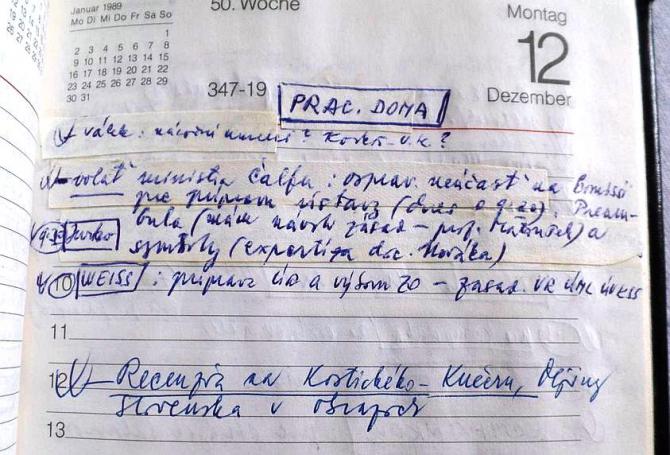 Januar 1989
Mo Di Mi Do Fr Sa So
1
2 3 4 5 6 7 8
9 10 11 12 13 14 15
16 17 18 19 20 21 22
23 24 25 26 27 28 29
30 31
50. Woche
Montag
12
Dezember
347-19
PRAC. DOMA
národní umelci?
volať ministra Čalfu: osprav. neúčasť na
pre prípravu ústavy (dnes o 9.00). Pream-
bula (mám návrh zásad – prof. ) a
symboly (expertíza doc. Nováka)
10 WEISS: príprav a výbor ZO – zasad. VR ÚML ÚVKSS
11
12 Recenzia na Kostického – Kučeru, Dejiny
Slovenska v obrazoch
13